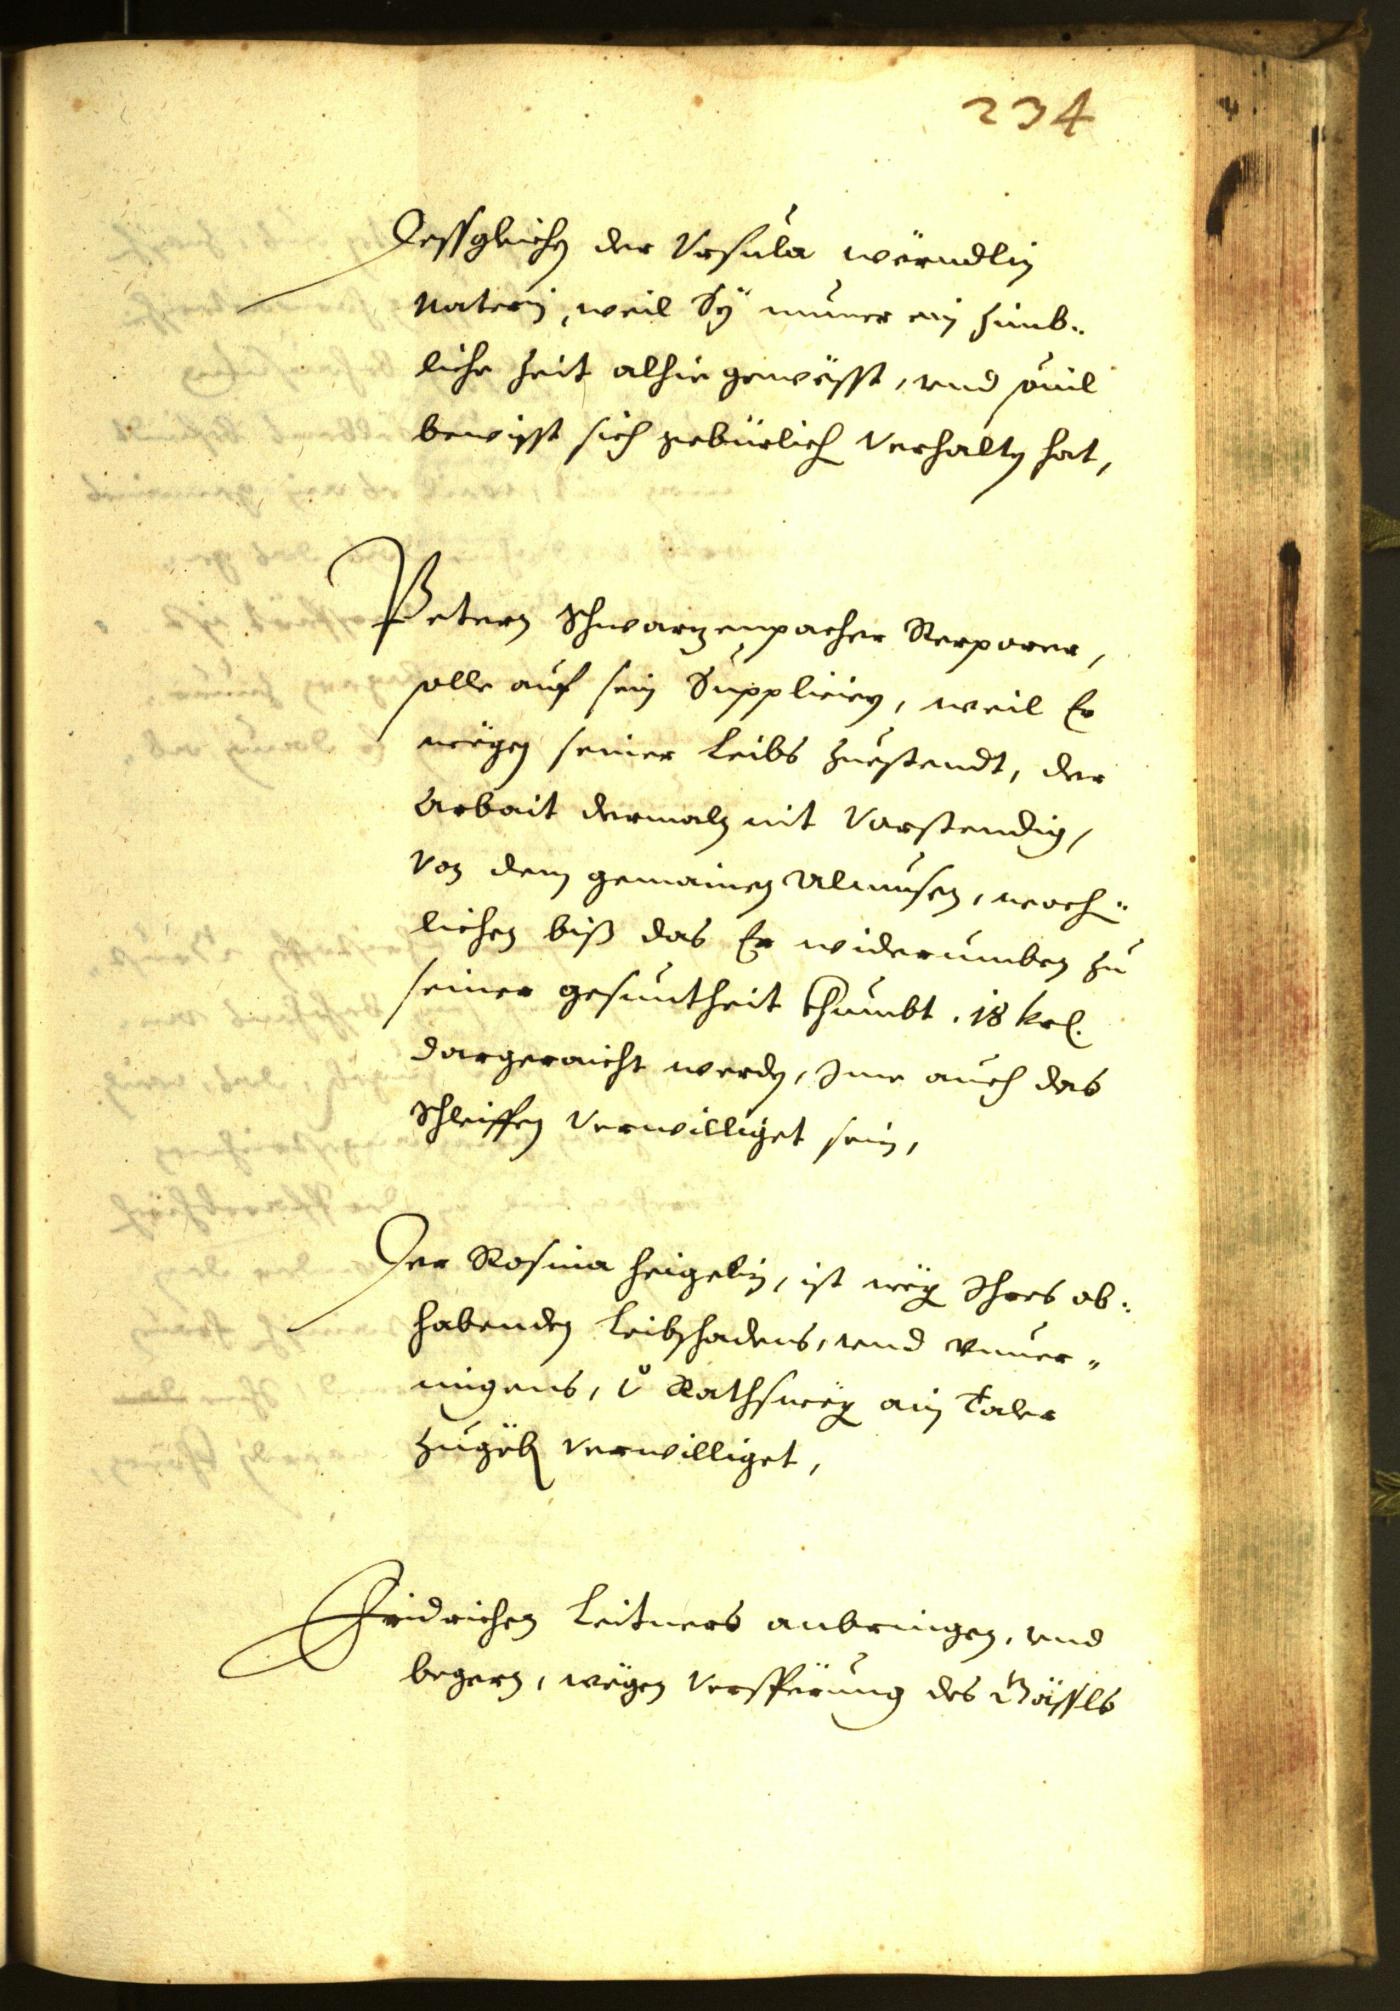 234
Dessgleichen der Vrsula wërndlin
Naterin, weil Sÿ nunner ein zimb„
liche Zeit alhie gewësst, vnd souil
bewisst sich gebürlich verhalten hat,
Petern Schwarzenpacher Kerporer,
solle auf sein Suppliciern, weil Er
wëgen seiner Leibs Zuestendt, der
Arbait dermaln nit Vorstendig,
Von dem gemainen Almusen, woch„
lichen biß das Er widerumben zu
seiner gesuntheit khumbt. 18 krl.
dargeraicht werden, Ime auch das
Schleiffen verwilliget sein,
Der Rosina heigelin, ist wëg Ihres ob„
habenden Leibschadens, vnd vnuer„
migens, Rathswëg ain Taler
zugëben verwilliget,
Fridrichen Leitners anbringen, vnd
begern, wëgen Versperung des Gässls